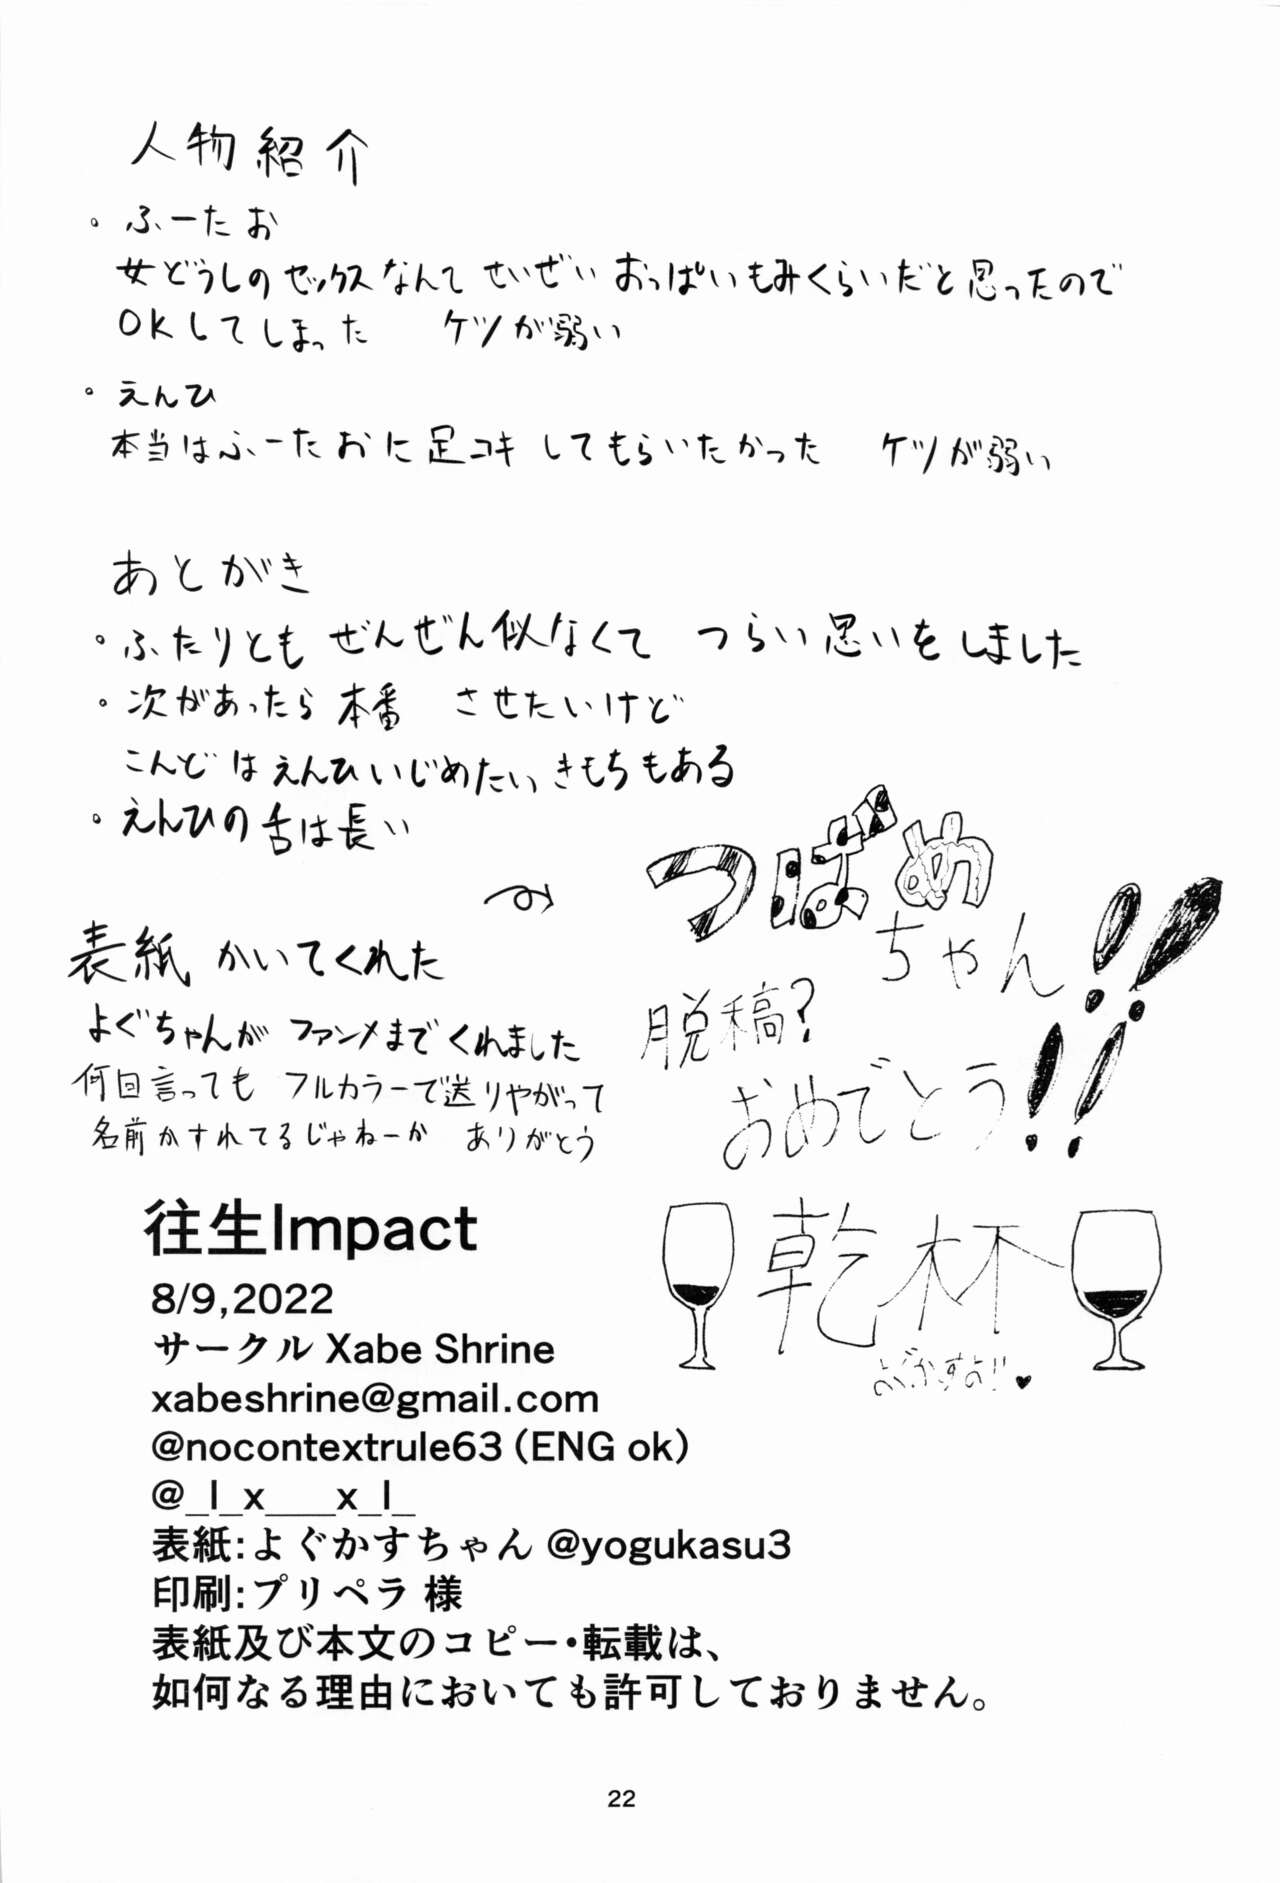 人物紹介
・ふーたお
女どうしのセックスなんて せいぜい おっぱいもみくらいだと思ったので
OKしてしまった ケツが弱い
・えんひ
本当はふーたおに足コキしてもらいたかった ケツが弱い
あとがき
・ふたりとも ぜんぜん似なくて つらい思いをしました
・次があったら本番 させたいけど
こんどはえんひいじめたいきもちもある
・えんひの舌は長い
表紙 かいてくれた
よぐちゃんが ファンメまでくれました
何回言っても フルカラーで送りやがって
名前かすれてるじゃねーか ありがとう
つばめ
ちゃん!!
脱稿?
おめでとう!!
乾杯
よぐかすよ!!♥
往生Impact
8/9,2022
サークル Xabe Shrine
xabeshrine@gmail.com
@nocontextrule63 (ENG ok)
@_l_x___x_l_
表紙:よぐかすちゃん @yogukasu3
印刷:プリペラ 様
表紙及び本文のコピー・転載は、
如何なる理由においても許可しておりません。
22